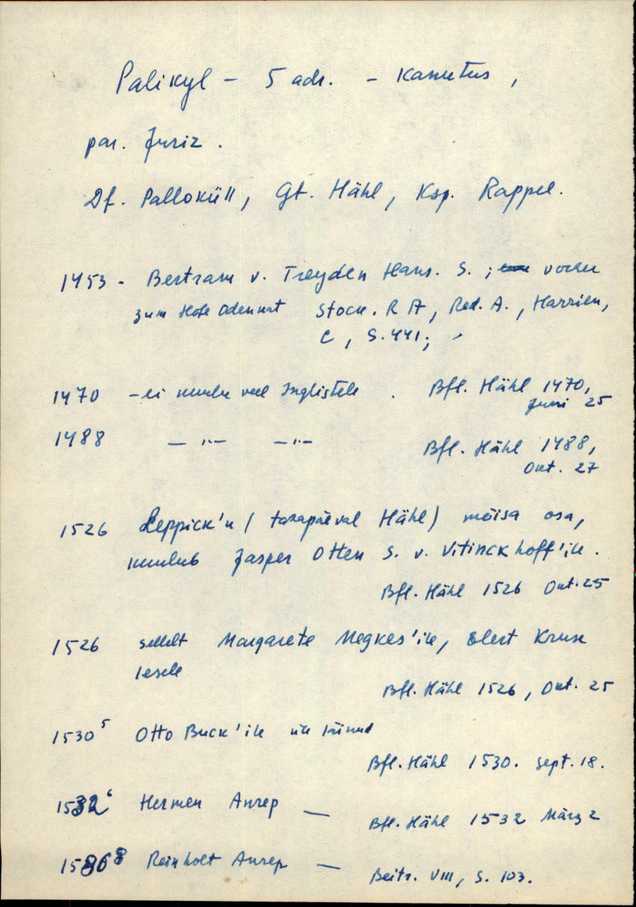 Palikyl – 5 adr. – Kanutus,
par. Juriz.
Df. Palloküll, Gt. Hähl, Ksp. Rappel.
1453 - Bertram v. Treyden Hans. S.; vorher
zum Hofe Odenkat Stock. R A, Red. A., Harrien,
C, S. 441;
1470 – ei kuulu veel Inglistele. Bfl. Hähl 1470,
Juni 25
1488 – " – – " – Bfl. Hähl 1488,
Okt. 27
1526 Leppick'u (tänapäeval Hähl) mõisa osa,
kuulub Jasper Otten S. v. Vitinckhoff'ile.
Bfl. Hähl 1526 Okt. 25
1526 sellelt Margarete Megkes'ile, Elert Kruse
lesele
Bfl. Hähl 1526, Okt. 25
1530⁵ Otto Buck'ile
Bfl. Hähl 1530. Sept. 18.
1532⁶ Hermen Anrep —
Bfl. Hähl 1532 März 2
1586⁸ Reinholt Anrep —
Beitr. VIII, S. 103.